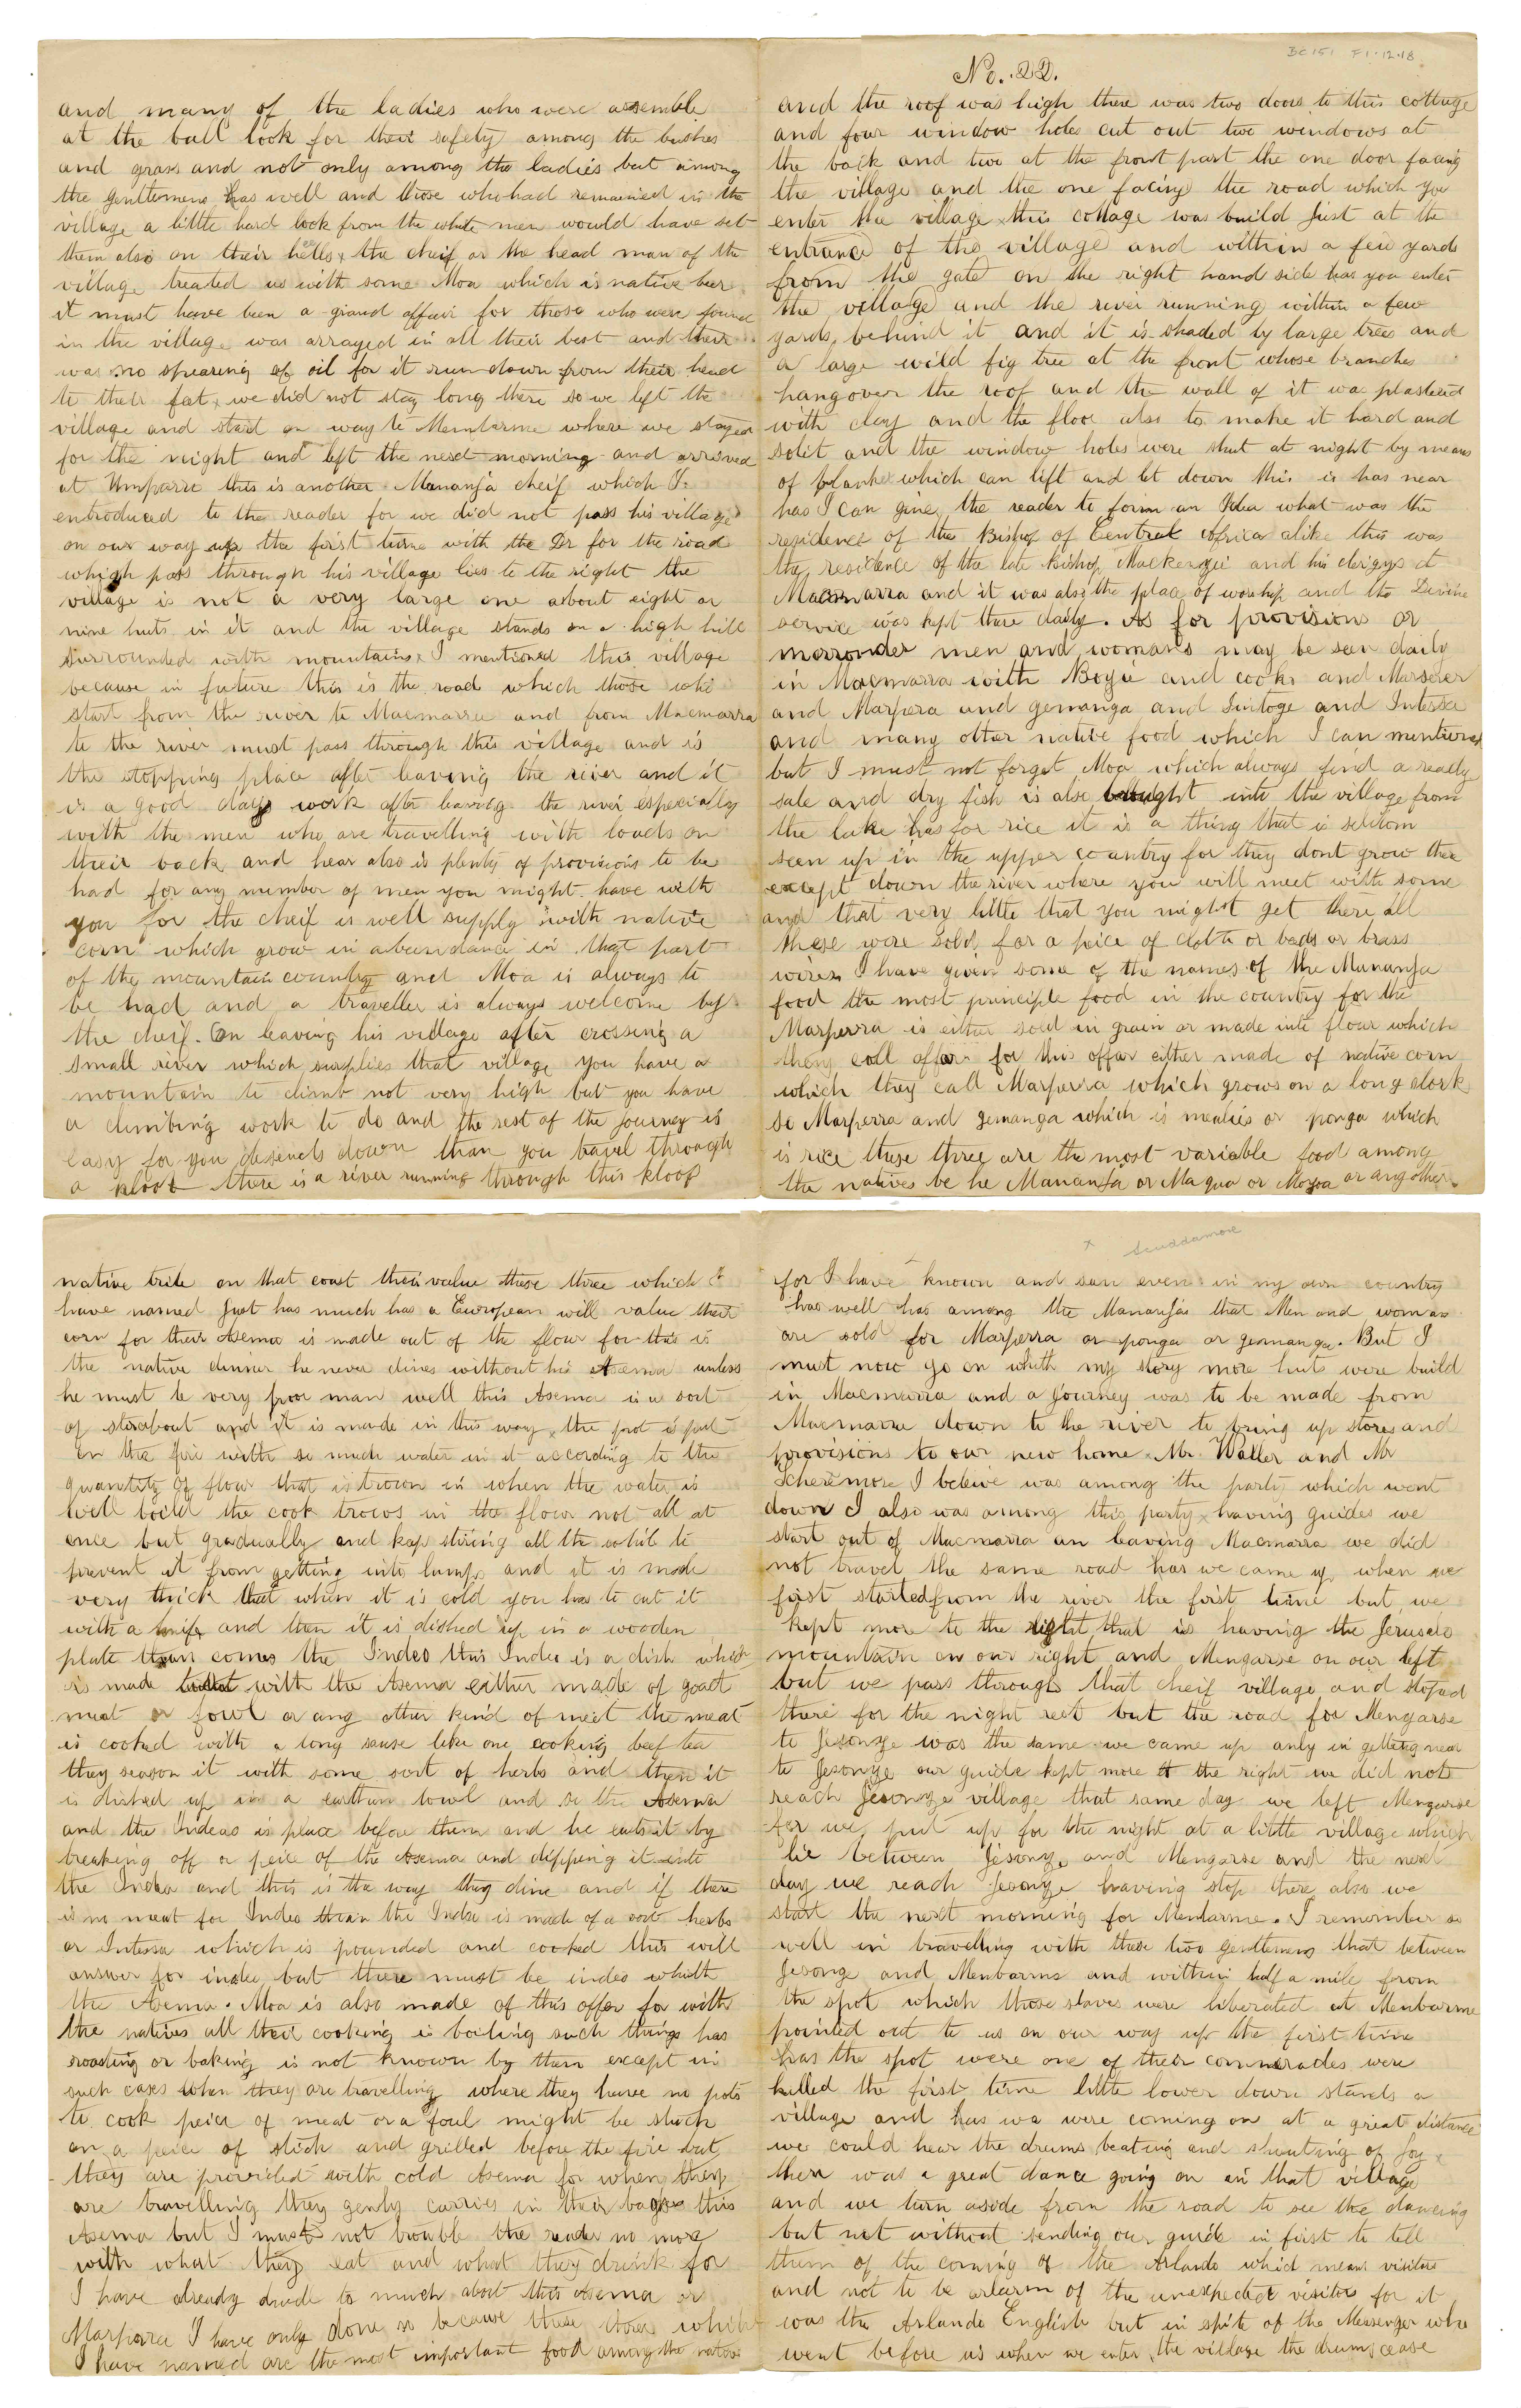 and many of the ladies who were assemble
at the ball look for their safety among the bushes
and grass and not only among the ladies but among
the gentlemens has well and those who had remained in the
village a little hard look from the white men would have set
them also on their heles, the cheif or the head man of the
village treated us with some Moa which is native beer
it must have been a grand affair for those who were found
in the village was arrayed in all their best and there
was no spearing of oil for it run down from their head
to their feat, we did not stay long there so we left the
village and start on way to Membarme where we stayed
for the night and left the next morning and arrived
at Umparre this is another Mananja cheif which I
entroduced to the reader for we did not pass his village
on our way up the first time with the Dr for the road
which pass through his village lies to the right the
village is not a very large one about eight or
nine huts in it and the village stands on a high hill
surrounded with mountains, I mentioned this village
because in future this is the road which those who
start from the river to Macmarra and from Macmarra
to the river must pass through this village and is
the stopping place after leaving the river and it
is a good days work after leaving the river especially
with the men who are travelling with loads on
their back and hear also is plenty of provisions to be
had for any number of men you might have with
you for the cheif is well supply with native
corn which grow in abeundance in that part
of the mountain country and Moa is always to
be had and a traveller is always welcome by
the cheif. On leaving his village after crossing a
small river which surplies that village you have a
mountain to climb not very high but you have
a climbing work to do and the rest of the journey is
easy for you desends down than you travel through
a kloof there is a river running through this kloof
BC 151 F1.12.18
No. 22.
and the roof was high there was two doors to this cottage
and four window holes cut out two windows at
the back and two at the front part the one door facing
the village and the one facing the road which you
enter the village this cottage was build just at the
entrance of the village and within a few yards
from the gate on the right hand side has you enter
the village and the river running within a few
yards behind it and it is shaded by large trees and
a large wild fig tree at the front whose branches
hang over the roof and the wall of it was plasterd
with clay and the floor also to make it hard and
solit and the window holes were shut at night by means
of planks which can lift and let down this is has near
has I can give the reader to form an Idea what was the
residence of the Bishop of Central Africa alike this was
the residence of the late Bishop Mackenzie and his clergys at
Macmarra and it was also the place of worship and the Divine
service was kept there daily. As for provisions or
merrondes men and womans may be seen daily
in Macmarra with Boyie and cooks and Marserer
and Marpera and gemanga and Sintoge and Intessa
and many other native food which I can mentioned
but I must not forget Moa which always find a really
sale and dry fish is also brought into the village from
the lake has for rice it is a thing that is seldom
seen up in the upper country for they dont grow thee
except down the river where you will meet with some
and that very little that you might get there all
these were sold for a peice of cloth or beads or brass
wires I have given some of the names of the Mananja
food the most principle food in the country for the
Marperra is either sold in grain or made into flour which
they call offar for this offar either made of native corn
which they call Marperra which grows on a long stork
so Marperra and gemanga which is mealies or ponga which
is rice these three are the most variable food among
the natives be he Mananja or Maqua or Moyoa or any other
native tribe on that coast their value these three which I
have named just has much has a European will value their
corn for their Asema is made out of the flour for this is
the native dinner he never dines without his Asema unless
he must be very poor man well this Asema is a sort
of stirabout and it is made in this way, the pot is put
on the fire with so much water in it according to the
quantity of flour that is trown in when the water is
well boild the cook trows in the flour not all at
once but gradually and kep stiring all the while to
prevent it from getting into lumps and it is made
very thick that when it is cold you has to cut it
with a knife and then it is dished up in a wooden
plate than comes the Indeo this Indeo is a dish which
is made with the Asema either made of goat
meat or fowl or any other kind of meet the meat
is cooked with a long sause like one cooking beef tea
they season it with some sort of herbs and then it
is dished up in a earthen bowl and so the Asema
and the Indeos is place before them and he eats it by
breaking off a peice of the Asema and dipping it into
the Indeo and this is the way they dine and if there
is no meat for Indeo than the Indeo is made of a sort herbs
or Intessa which is pounded and cooked this will
answer for indeo but there must be indeo whith
the Asema. Moa is also made of this offer for with
the natives all their cooking is boiling such things has
roasting or baking is not known by them except in
such cases when they are travelling where they have no pots
to cook peice of meat or a foul might be stuck
on a peice of stick and grilled before the fire but
they are provided with cold Asema for when they
are travelling they genly carries in their bages this
Asema but I must not trouble the reader no more
with what they eat and what they drink for
I have already drude to much about this Asema or
Marperra I have only done so because these stores which
I have named are the most important food among the natives
x Scuddamore
for I have known and seen even in my own country
has well has among the Mananjas that Men and womans
are sold for Marperra or ponga or gemanga. But I
must now go on whith my story more huts were build
in Macmarra and a journey was to be made from
Macmarra down to the river to bring up stores and
provisions to our new home. Mr. Waller and Mr
Scheremore I beleive was among the party which went
down I also was among this party, having guides we
start out of Macmarra an leaving Macmarra we did
not travel the same road has we came up when we
first started from the river the first time but we
kept more to the right that is having the Jeruselo
mountain on our right and Mengarse on our left
but we pass through that cheif village and stoped
there for the night rest but the road for Mengarse
to Jesonge was the same we came up only in getting near
to Jesonge our guide kept more to the right we did not
reach Jesonge village that same day we left Mengarse
for we put up for the night at a little village which
lie between Jesonge and Mengarse and the next
day we reach Jesonge having stop there also we
start the next morning for Membarme. I remember so
well in travelling with these two gentlemens that between
Jesonge and Menbarme and within half a mile from
the spot which those slaves were liberated at Menbarme
pointed out to us on our way up the first time
has the spot were one of their commerades were
killed the first time little lower down stands a
village and has we were coming on at a great distance
we could hear the drums beating and shouting of joy
there was a great dance going on in that village
and we turn aside from the road to see the dancing
but not without sending our guide in first to tell
them of the coming of the Arlando which means visitors
and not to be alarm of the unexpected visitors for it
was the Arlando English but in spite of the Messenger who
went before us when we enter the village the drums cease